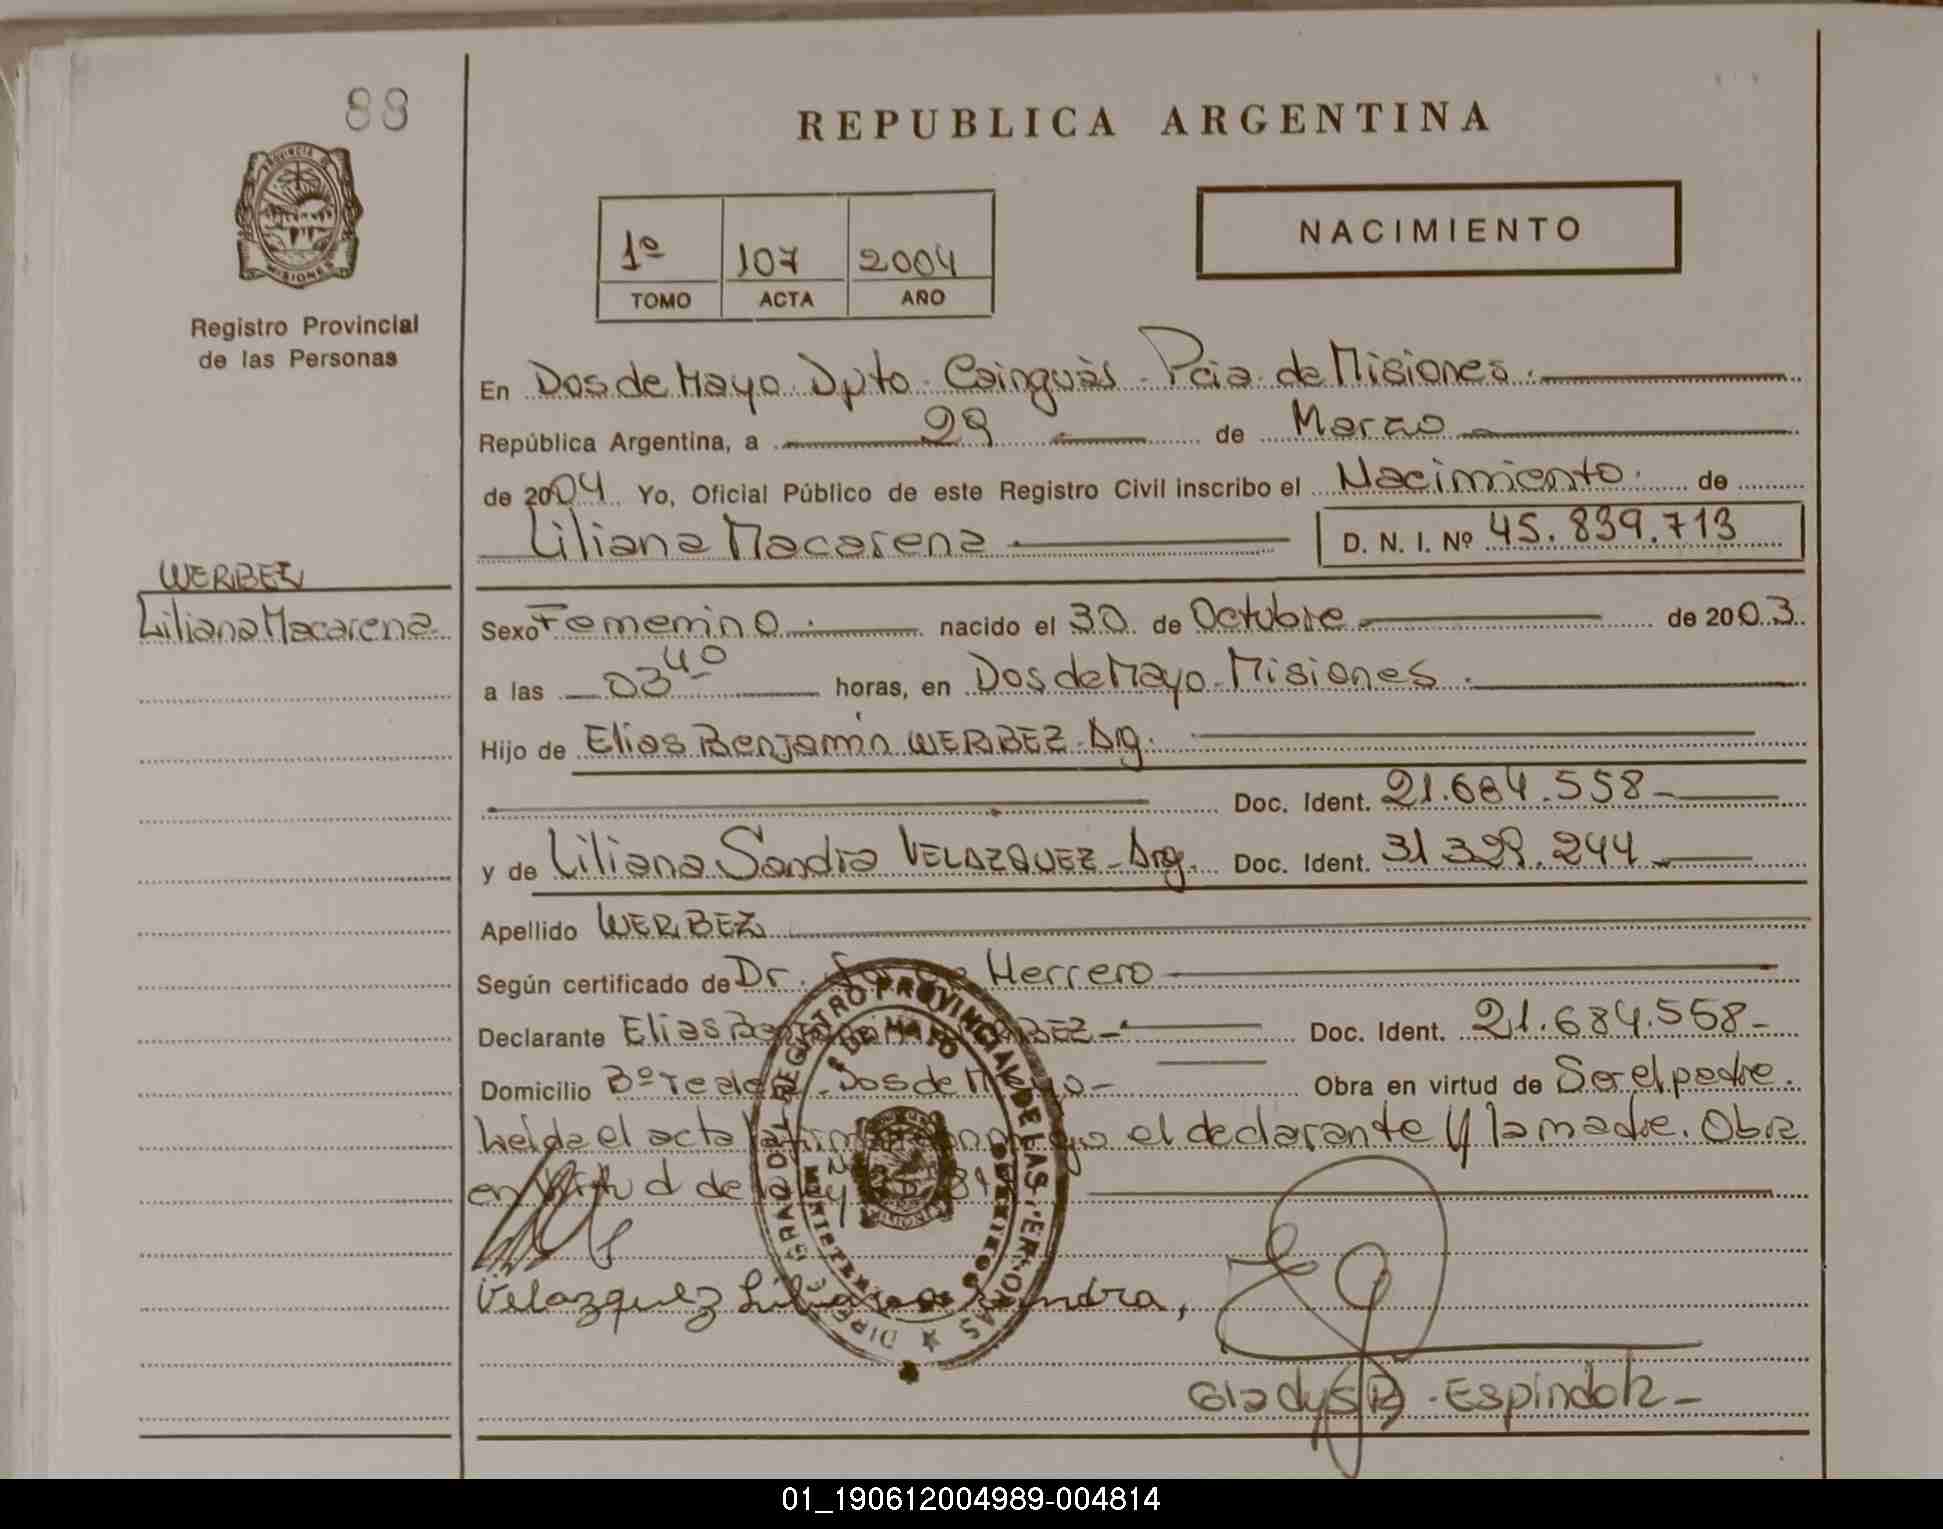 88
REPUBLICA ARGENTINA
PROVINCIA DE
MISIONES
Registro Provincial
de las Personas
1º 107 2004
TOMO ACTA AÑO
NACIMIENTO
En Dos de Mayo. Dpto. Cainguàs. Pcia. de Misiones.
República Argentina, a 29 de Marzo
de 2004 Yo, Oficial Público de este Registro Civil inscribo el Nacimiento. de
Liliana Macarena D. N. I. Nº 45.839.713
WERBEZ
Liliana Macarena
Sexo Femenino. nacido el 30 de Octubre de 2003.
a las 03 40 horas, en Dos de Mayo. Misiones.
Hijo de Elias Benjamin WERBEZ. Arg.
Doc. Ident. 21.684.558-
y de Liliana Sandra VELAZQUEZ- Arg. Doc. Ident. 31 329.244
Apellido WERBEZ
Según certificado de Dr. Herrero
Declarante Elias BEZ- Doc. Ident. 21.684.558-
Domicilio Bº Dos de Mayo- Obra en virtud de Ser el padre.
Leida el acta el declarante y la madre. Obra
en virtud de la ley
Velazquez Liliana Sandra,
Gladys B. Espindola-
DIRECC GRAL DEL REGISTRO PROVINCIAL DE LAS PERSONAS
2 DE MAYO
MISIONES
01_190612004989-004814